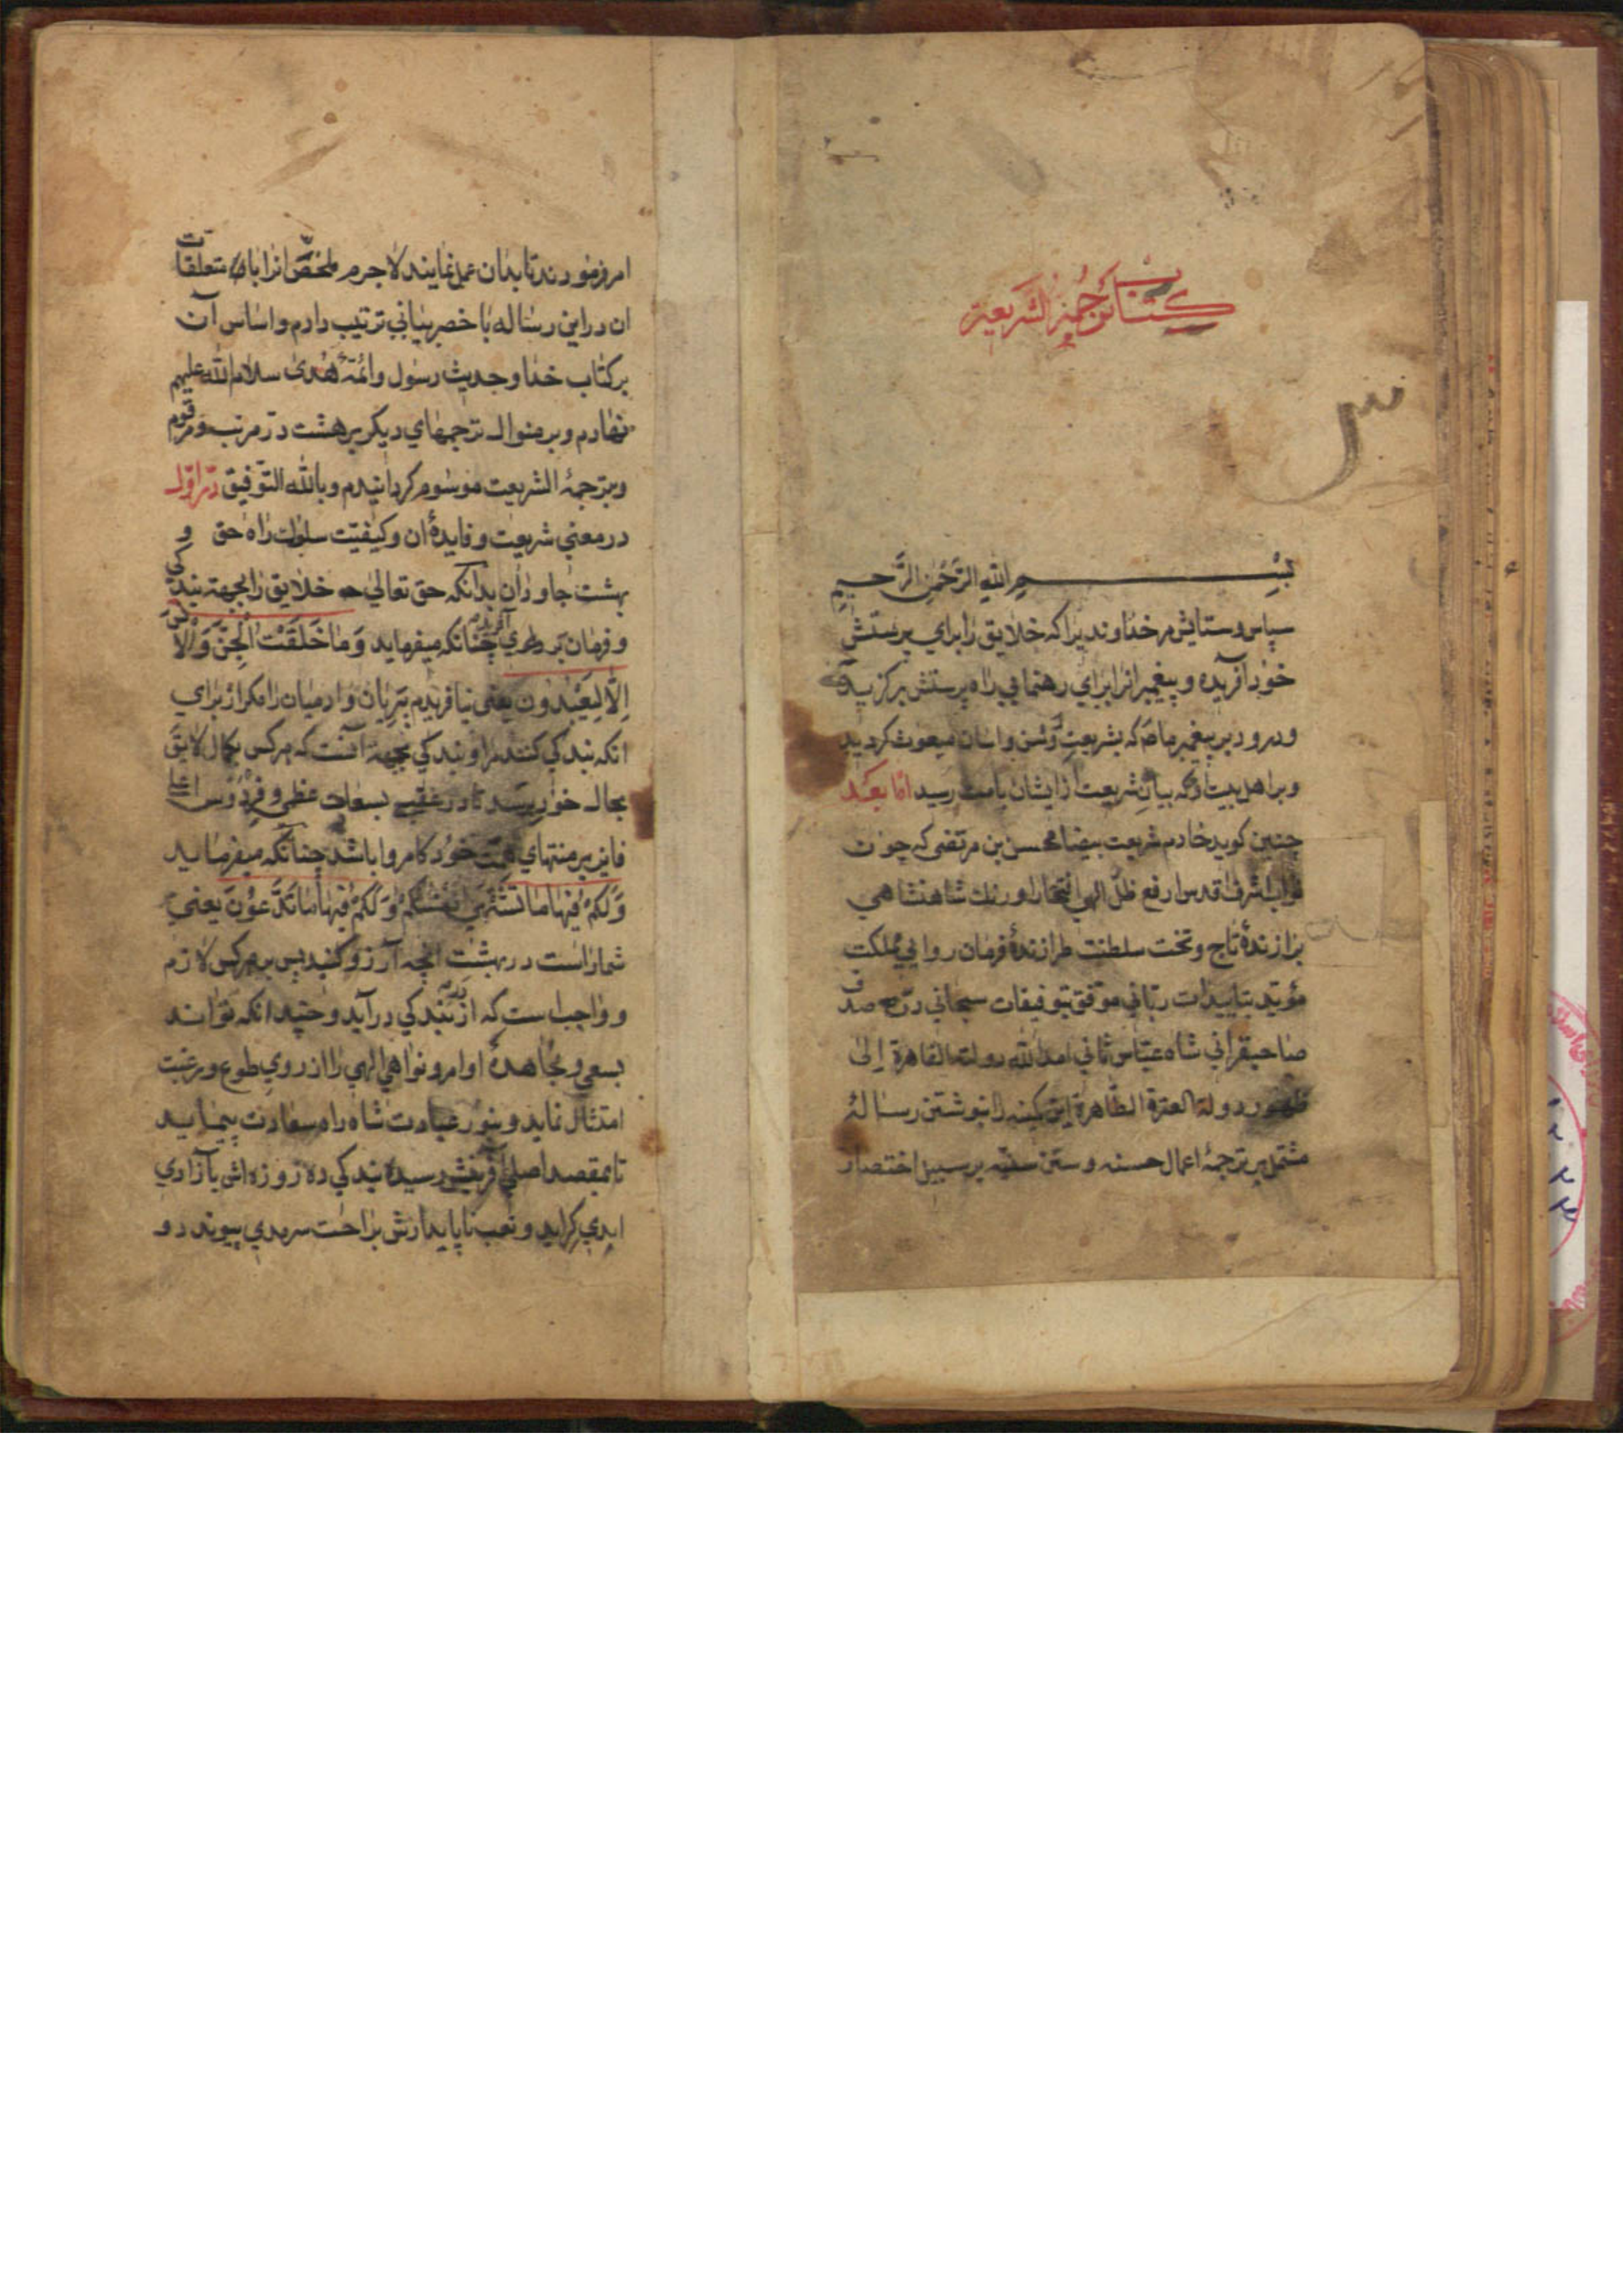 كتاب ترجمة الشريعة
بسم الله الرحمن الرحيم
سپاس و ستايش مر خداونديرا كه خلايق را براي پرستش
خود آفريده و پيغمبرانرا براي رهنمايي راه پرستش بركزيده
و درود بر پيغمبر ما كه بشريعت روشن واسان مبعوث كرديد
و بر اهل بيت او كه بيان شريعت از ايشان بامت رسيد اما بعد
چنين كويد خادم شريعت بيضا محسن بن مرتضى كه چون
نواب اشرف اقدس ارفع ظل الهي افتخار اورنك شاهنشاهي
برازندهٔ تاج و تخت سلطنت طرازندهٔ فرمان روايي مملكت
مؤيد بتاييدات رباني موفق بتوفيقات سبحاني در صدف
صاحبقراني شاه عباس ثاني امد الله دولته القاهرة إلى
ظهور دولة العترة الطاهرة اين كمينه را بنوشتن رسالهٔ
مشتمل بر ترجمهٔ اعمال حسنه و سنن سنيه بر سبيل اختصار
امر فرمودند تا بدان عمل نمايند لاجرم ملخص انرا با متعلقات
ان در اين رساله با خصر بياني ترتيب دادم و اساس آن
بر كتاب خدا و حديث رسول و ائمهٔ هدى سلام الله عليهم
نهادم و بر منوال ترجمهاي ديكر بر هشت در مرتب و مرقوم
و بترجمة الشريعت موسوم كردانيدم و بالله التوفيق در اول
در معني شريعت و فايدهٔ ان و كيفيت سلوك راه حق و
بهشت جاودان بدانكه حق تعالى خلايق را بجهة بندكي
و فرمان بر داري آفريده چنانكه ميفرمايد وَمَا خَلَقْتُ الْجِنَّ وَالْاِنْسَ
اِلَّا لِيَعْبُدُونِ يعني نيافريدم پريان و ادميان را مكر از براي
انكه بندكي كنند مرا و بندكي بجهة آنست كه هر كس بكمال لايق
بحال خود برسد تا در عقبى بسعادت عظمى و فردوس اعلى
فايز بر منتهاي همت خود كامروا باشد چنانكه ميفرمايد
وَلَكُمْ فِيهَا مَا تَشْتَهِي اَنْفُسُكُمْ وَلَكُمْ فِيهَا مَا تَدَّعُونَ يعني
شما راست در بهشت انچه آرزو كنيد پس بر هر كس لازم
و واجب است كه از در بندكي در آيد و چندانكه تواند
بسعي و مجاهده اوامر و نواهي الهي را از روي طوع و رغبت
امتثال نمايد و بنور عبادت شاه راه سعادت بپيمايد
تا بمقصد اصلي آفرينش رسيده بندكي ده روزه اش بآزادي
ابدي كرايد و تعب ناپايدارش براحت سرمدي پيوندد و